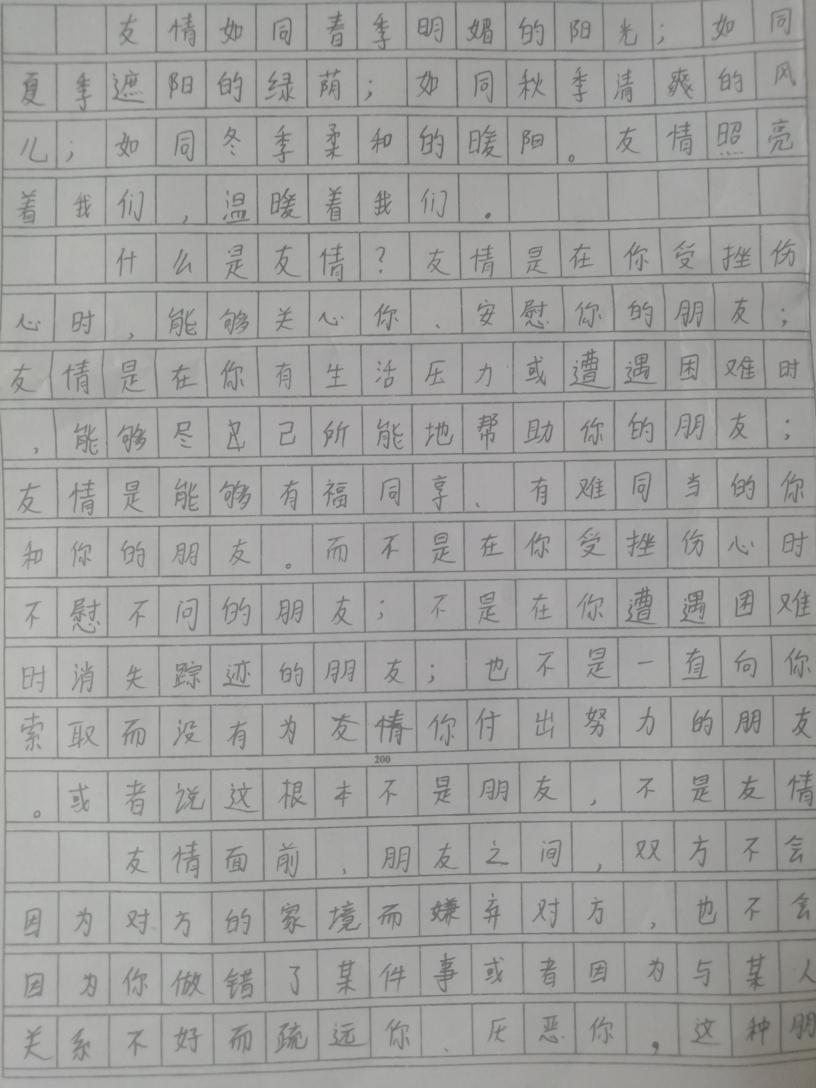 友情如同春季明媚的阳光；如同
夏季遮阳的绿荫；如同秋季清爽的风
儿；如同冬季柔和的暖阳。友情照亮
着我们，温暖着我们。
什么是友情？友情是在你受挫伤
心时，能够关心你、安慰你的朋友；
友情是在你有生活压力或遭遇困难时
，能够尽己所能地帮助你的朋友；
友情是能够有福同享、有难同当的你
和你的朋友。而不是在你受挫伤心时
不慰不问的朋友；不是在你遭遇困难
时消失踪迹的朋友；也不是一直向你
索取而没有为友情你付出努力的朋友
200
。或者说这根本不是朋友，不是友情
友情面前，朋友之间，双方不会
因为对方的家境而嫌弃对方，也不会
因为你做错了某件事或者因为与某人
关系不好而疏远你、厌恶你，这种朋